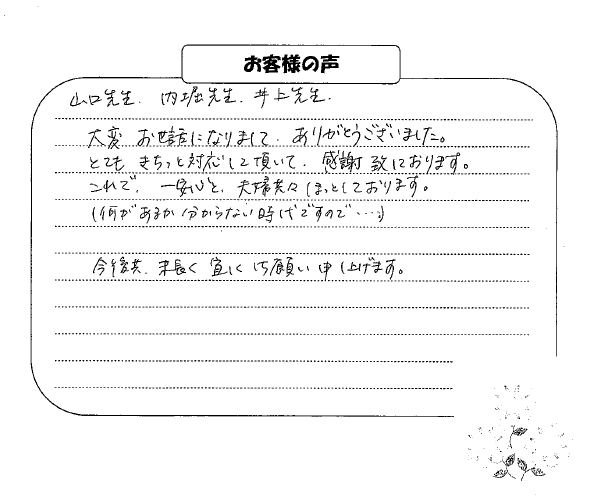 お客様の声
山口先生、内堀先生、井上先生、
大変 お世話になりまして、ありがとうございました。
とても きちっと対応して頂いて、感謝 致しております。
これで、一安心と、夫婦共々ほっとしております。
(何があるか分からない時代ですので…)
今後共、末長く 宜しく お願い 申し上げます。